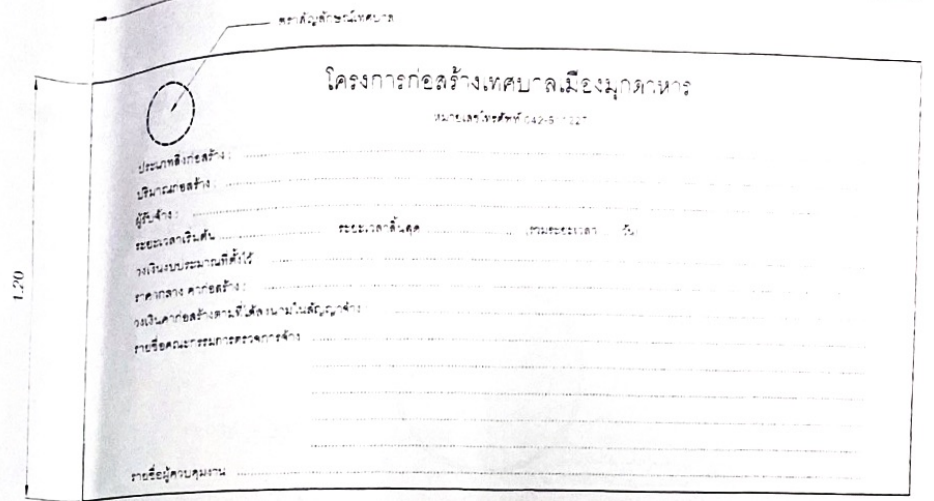 ตราสัญลักษณ์เทศบาล
โครงการก่อสร้างเทศบาลเมืองมุกดาหาร
หมายเลขโทรศัพท์ 042-6
ประเภทสิ่งก่อสร้าง :
ปริมาณก่อสร้าง :
ผู้รับจ้าง :
ระยะเวลาเริ่มต้น ระยะเวลาสิ้นสุด (รวมระยะเวลา วัน)
วงเงินงบประมาณที่ตั้งไว้
ราคากลาง ค่าก่อสร้าง :
วงเงินค่าก่อสร้างตามที่ได้ลงนามในสัญญาจ้าง
รายชื่อคณะกรรมการตรวจการจ้าง
รายชื่อผู้ควบคุมงาน
1.20